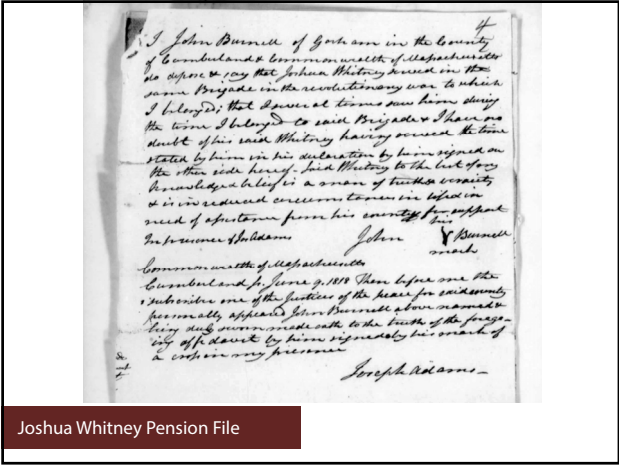 4
I John Burnell of Gorham in the County
of Cumberland & Commonwealth of Massachusetts
do depose & say that Joshua Whitney served in the
same Brigade in the revolutionary war to which
I belonged; that several times saw him during
the time I belonged to said Brigade & I have no
doubt of his said Whitney having served the time
stated by him in his declaration by him signed on
the other side hereof - Said Whitney to the best of my
knowledge & belief is a man of truth & veracity
& is in reduced circumstances in life & in
need of assistance from his country for support
In presence of Jos Adams
his
John X Burnell
mark
Commonwealth of Massachusetts
Cumberland ss June 9, 1818 Then before me the
subscriber one of the Justices of the peace for said county
personally appeared John Burnell above named &
being duly sworn made oath to the truth of the forego-
ing affidavit by him signed by his mark of
a cross in my presence
Joseph Adams -
Joshua Whitney Pension File